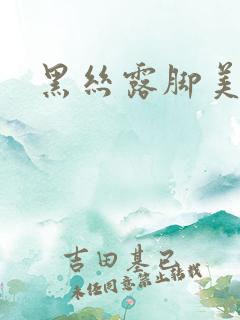 黑丝露脚美
吉田基已
未经同意禁止转载